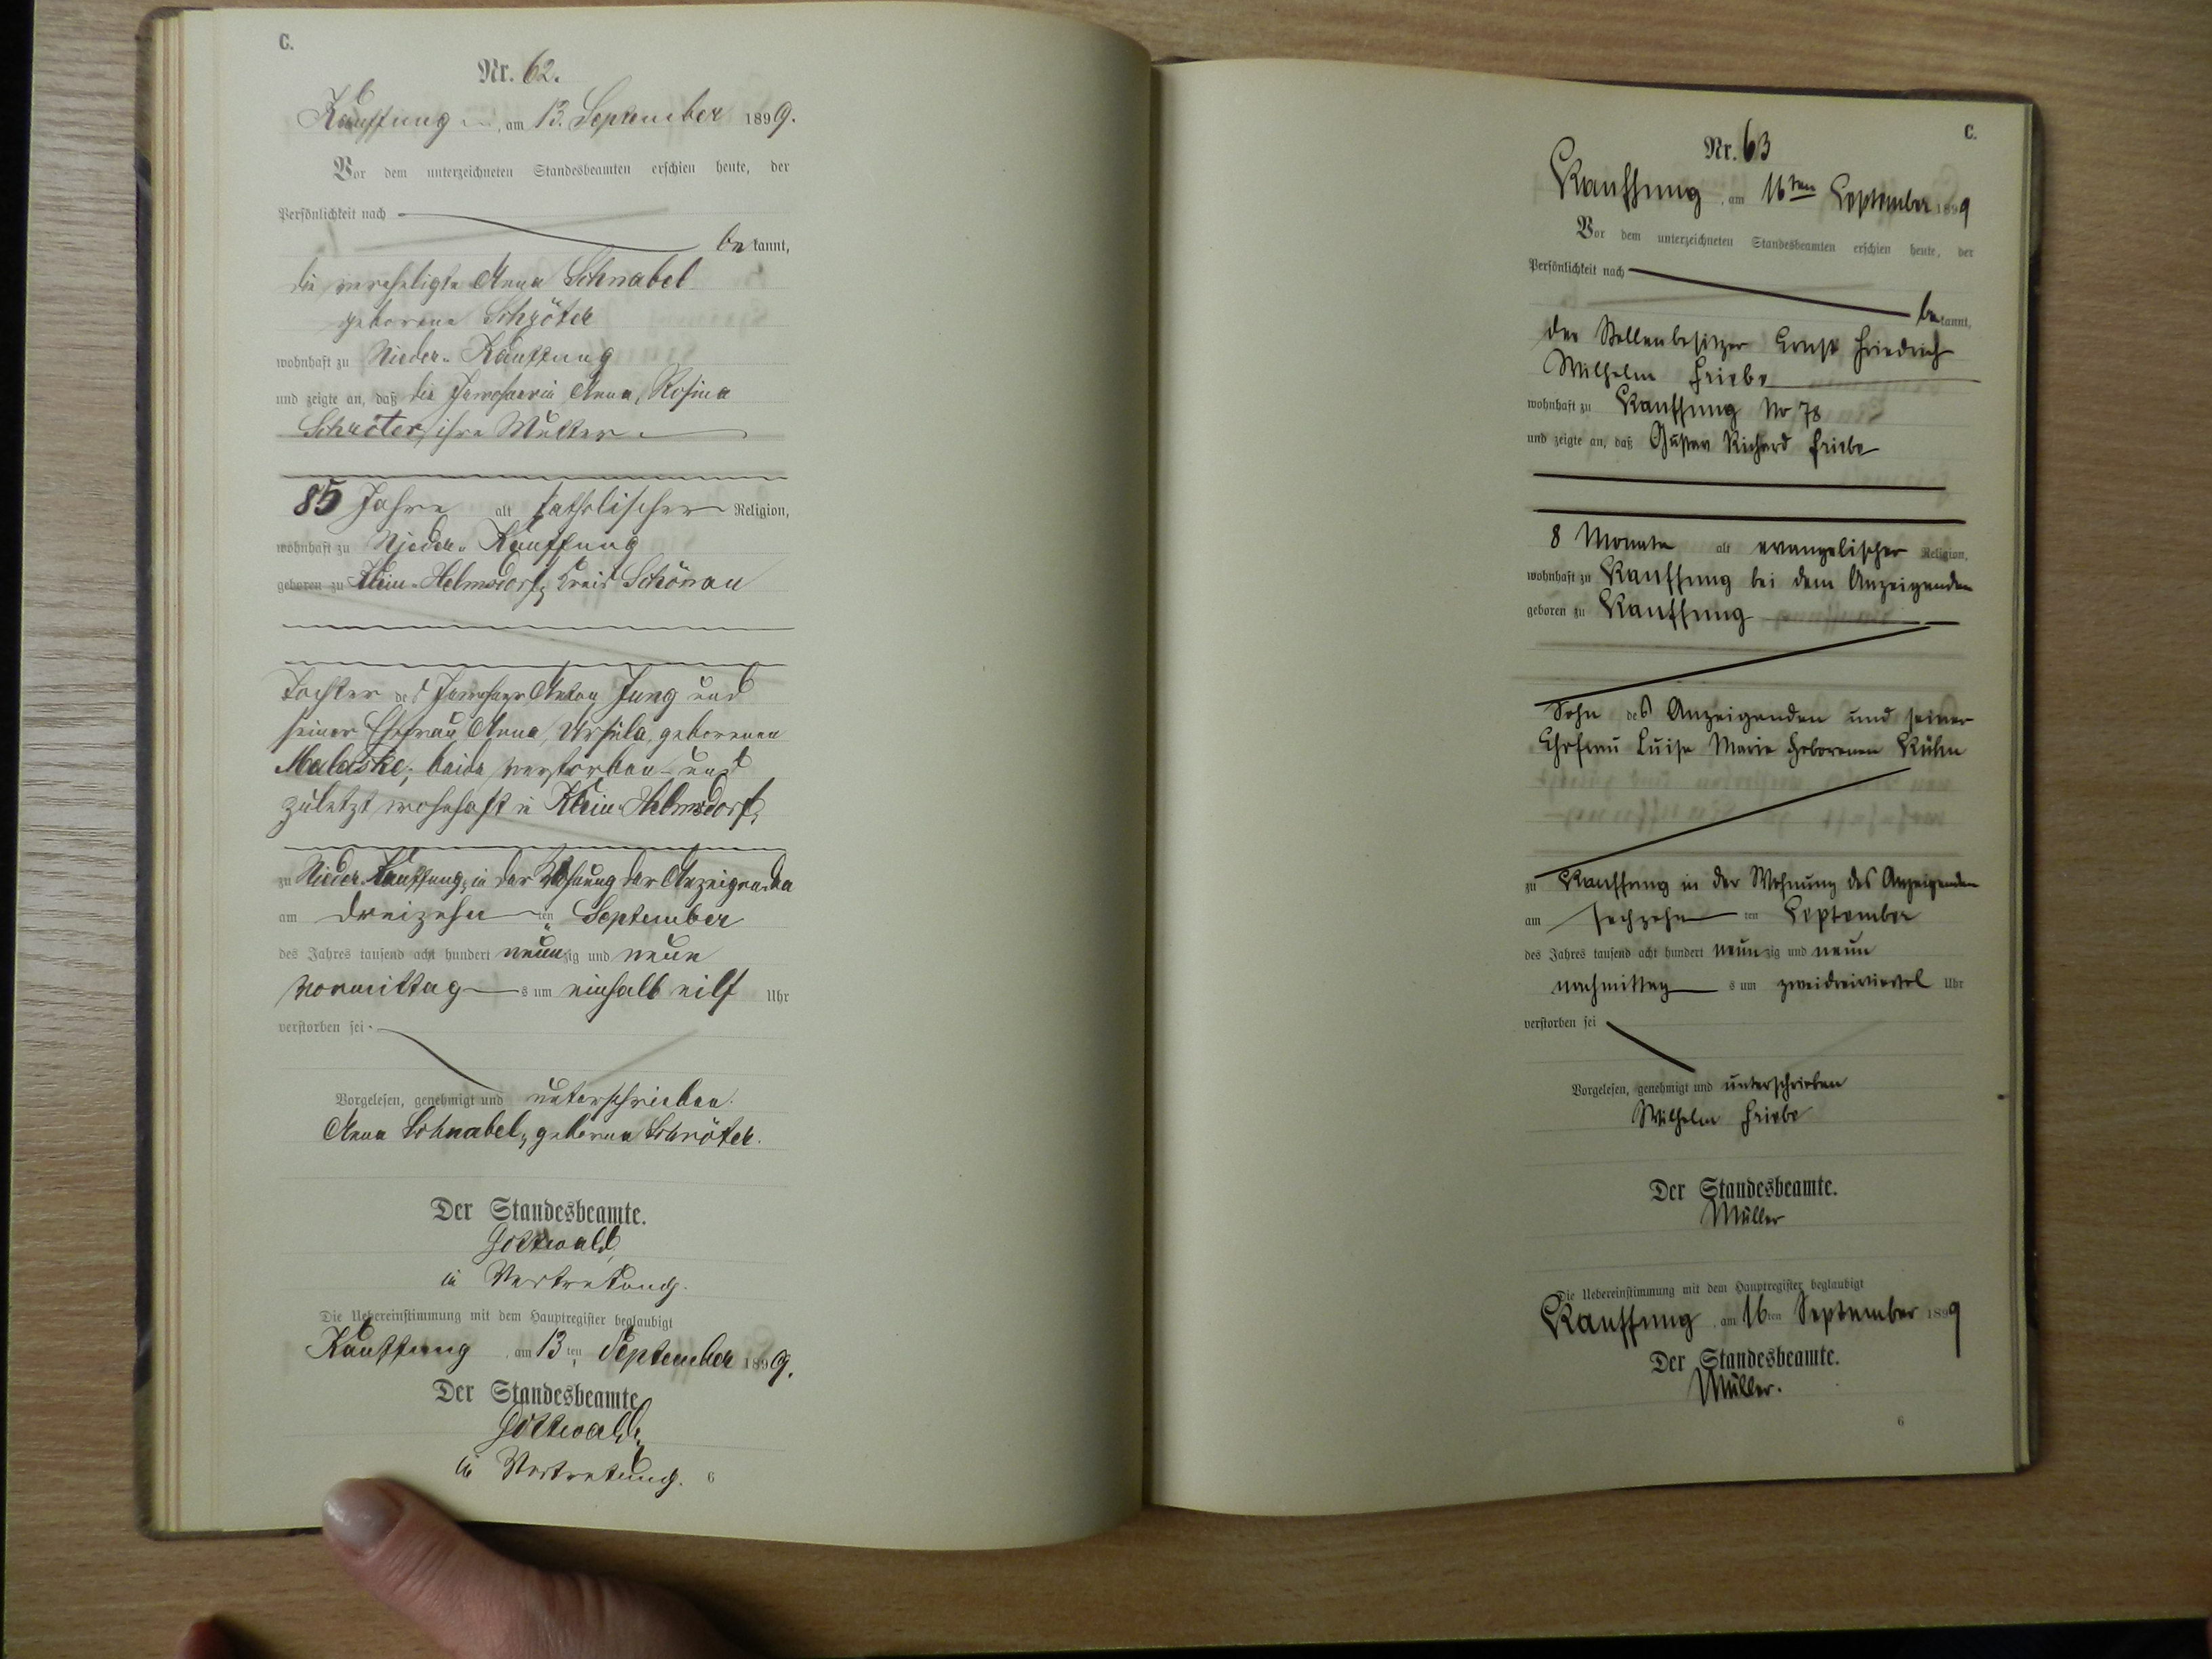 C.
Nr. 62.
Kauffung, am 13. September 1899.
Vor dem unterzeichneten Standesbeamten erschien heute, der
Persönlichkeit nach
be kannt,
die verehelichte Anna Schnabel
geborene Schröter
wohnhaft zu Nieder-Kauffung
und zeigte an, daß die Anna, Rosina
Schröter, ihre Mutter
85 Jahre alt katholischer Religion,
wohnhaft zu Nieder-Kauffung
geboren zu Klein-Helmsdorf, Kreis Schönau
Tochter des Anton Jung und
seiner Ehefrau Anna, Ursula, geborenen
Malaske, beide verstorben und
zuletzt wohnhaft in Klein-Helmsdorf,
zu Nieder-Kauffung, in der Wohnung der Anzeigenden
am dreizehn ten September
des Jahres tausend acht hundert neun zig und neun
Vormittag s um einhalb eilf Uhr
verstorben sei
Vorgelesen, genehmigt und unterschrieben.
Anna Schnabel, geborene Schröter.
Der Standesbeamte.
Gottwald,
in Vertretung.
Die Uebereinstimmung mit dem Hauptregister beglaubigt
Kauffung, am 13ten September 1899.
Der Standesbeamte
Gottwald,
in Vertretung.
6
C.
Nr. 63
Kauffung, am 16ten September 1899
Vor dem unterzeichneten Standesbeamten erschien heute, der
Persönlichkeit nach
be kannt,
der Stellenbesitzer Ernst Friedrich
Wilhelm Friebe
wohnhaft zu Kauffung No 78
und zeigte an, daß Gustav Richard Friebe
8 Monate alt evangelischer Religion,
wohnhaft zu Kauffung bei dem Anzeigenden
geboren zu Kauffung
Sohn des Anzeigenden und seiner
Ehefrau Luise Marie geborenen Kühn
zu Kauffung in der Wohnung des Anzeigenden
am sechzehn ten September
des Jahres tausend acht hundert neun zig und neun
nachmittag s um zweidreiviertel Uhr
verstorben sei
Vorgelesen, genehmigt und unterschrieben
Wilhelm Friebe
Der Standesbeamte.
Müller
Die Uebereinstimmung mit dem Hauptregister beglaubigt
Kauffung, am 16ten September 1899
Der Standesbeamte.
Müller.
6